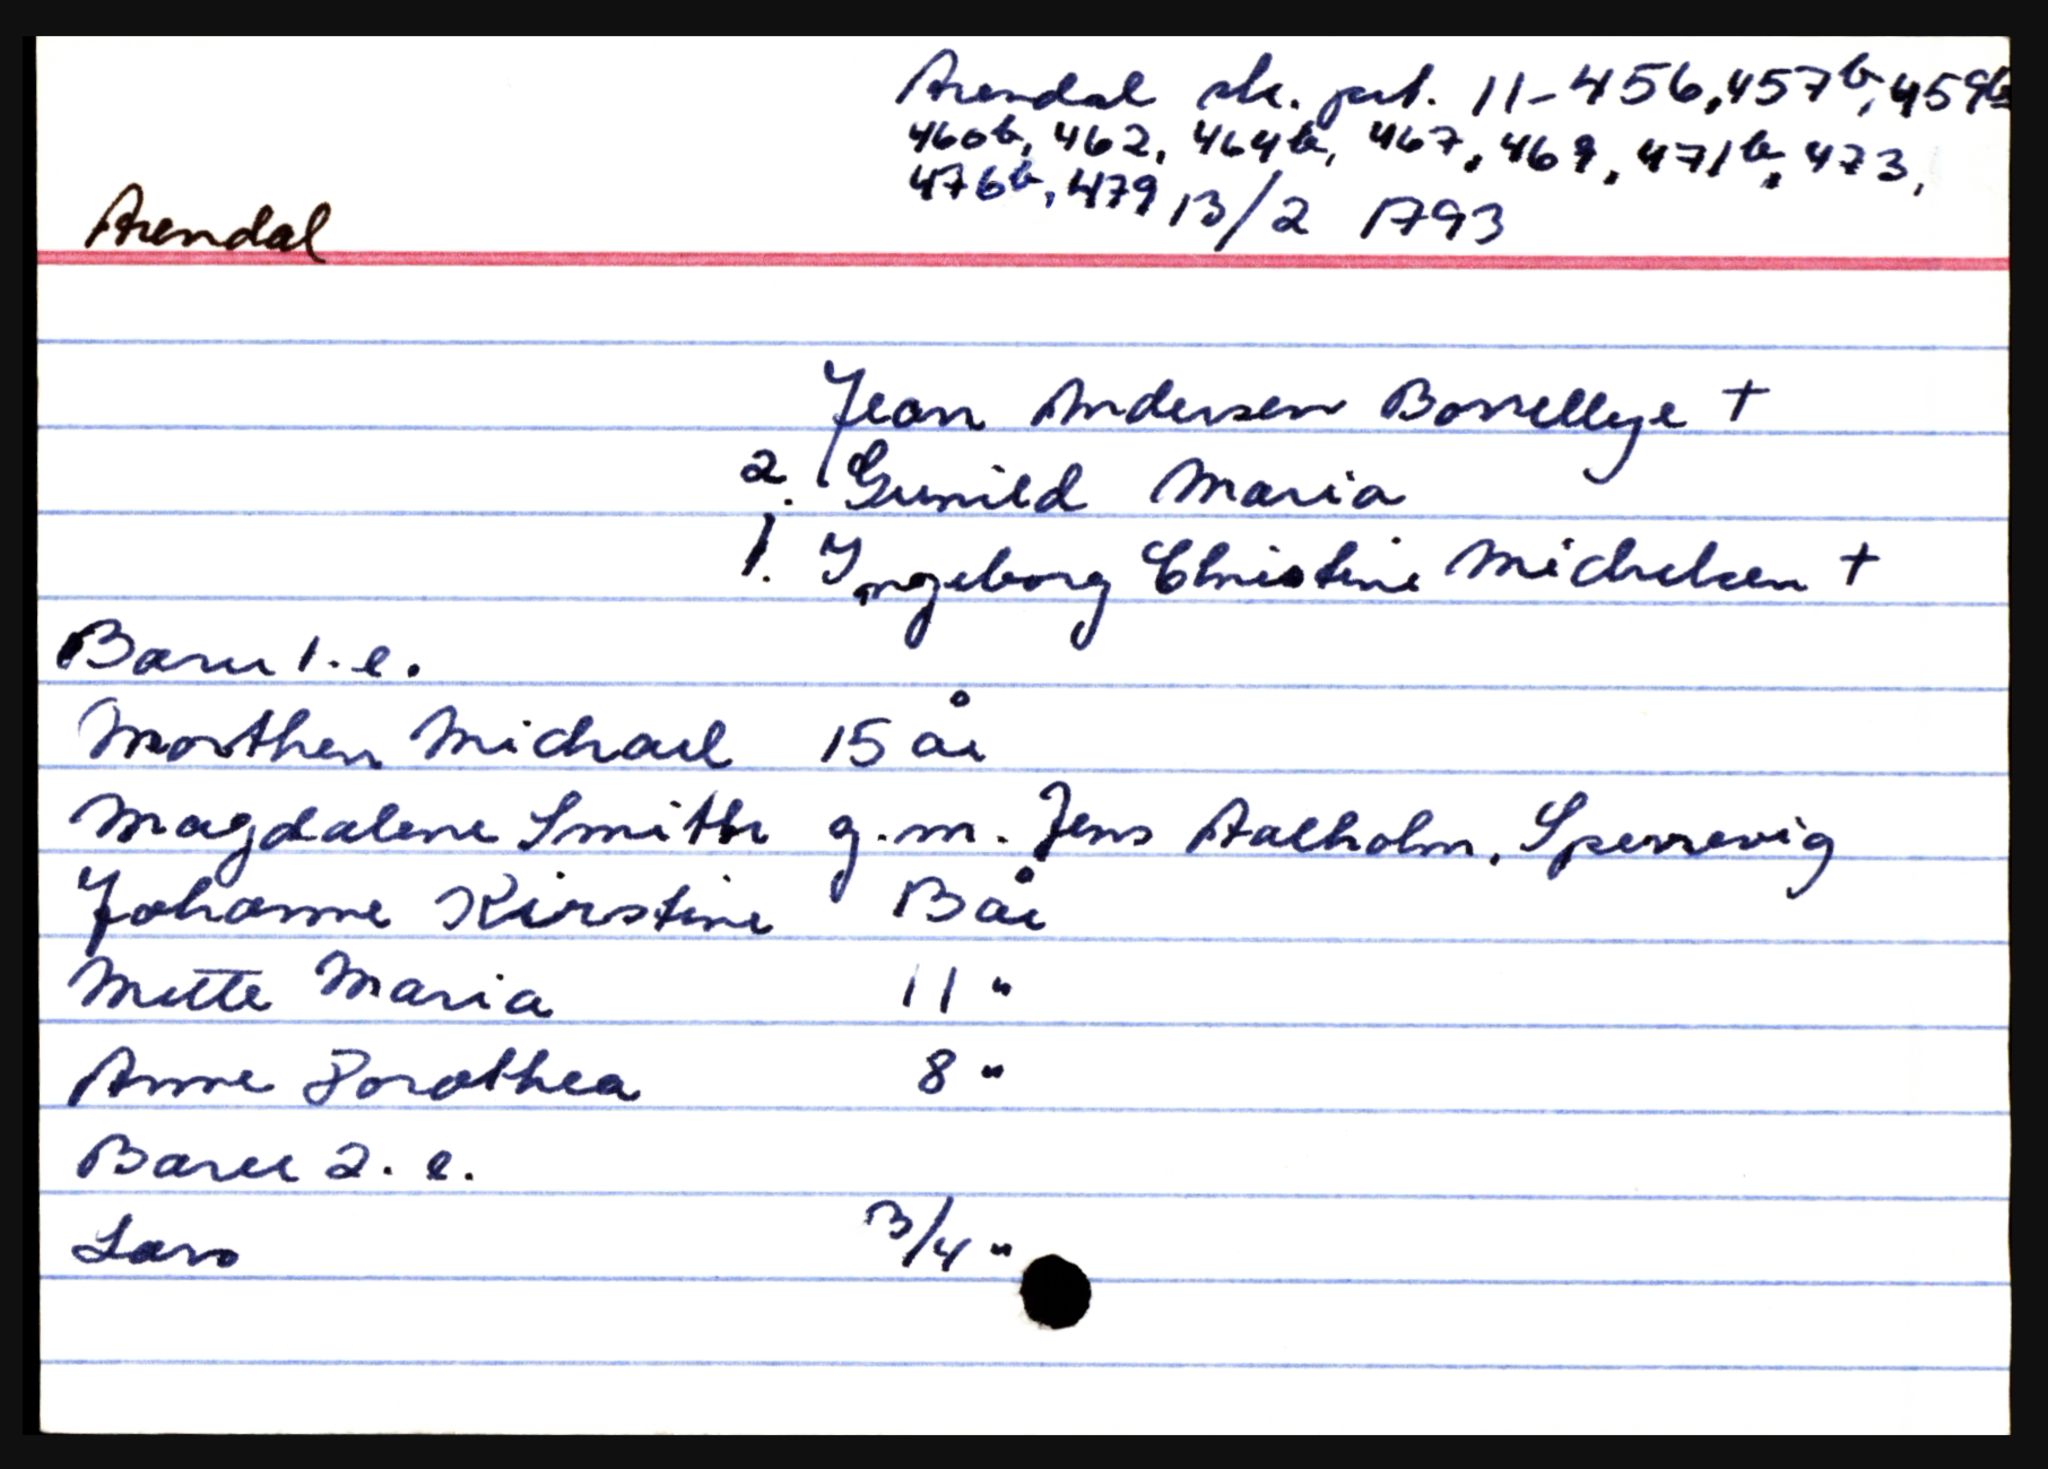 Arendal sk. prt. 11-456, 457b, 459b
460b, 462, 464b, 467, 469, 471b, 473,
476b, 479 13/2 1793
Arendal
Jean Andersen Bonellye +
2. Gunild Maria
1. Ingeborg Christine Michelsen +
Barn 1. e.
Morthen Michael 15 år
Magdalene Smith g.m. Jens Aalholm, Sperrevig
Johanne Kirstine 13 år
Mette Maria 11 "
Anne Dorothea 8 "
Barn 2. e.
Lars 3/4 "